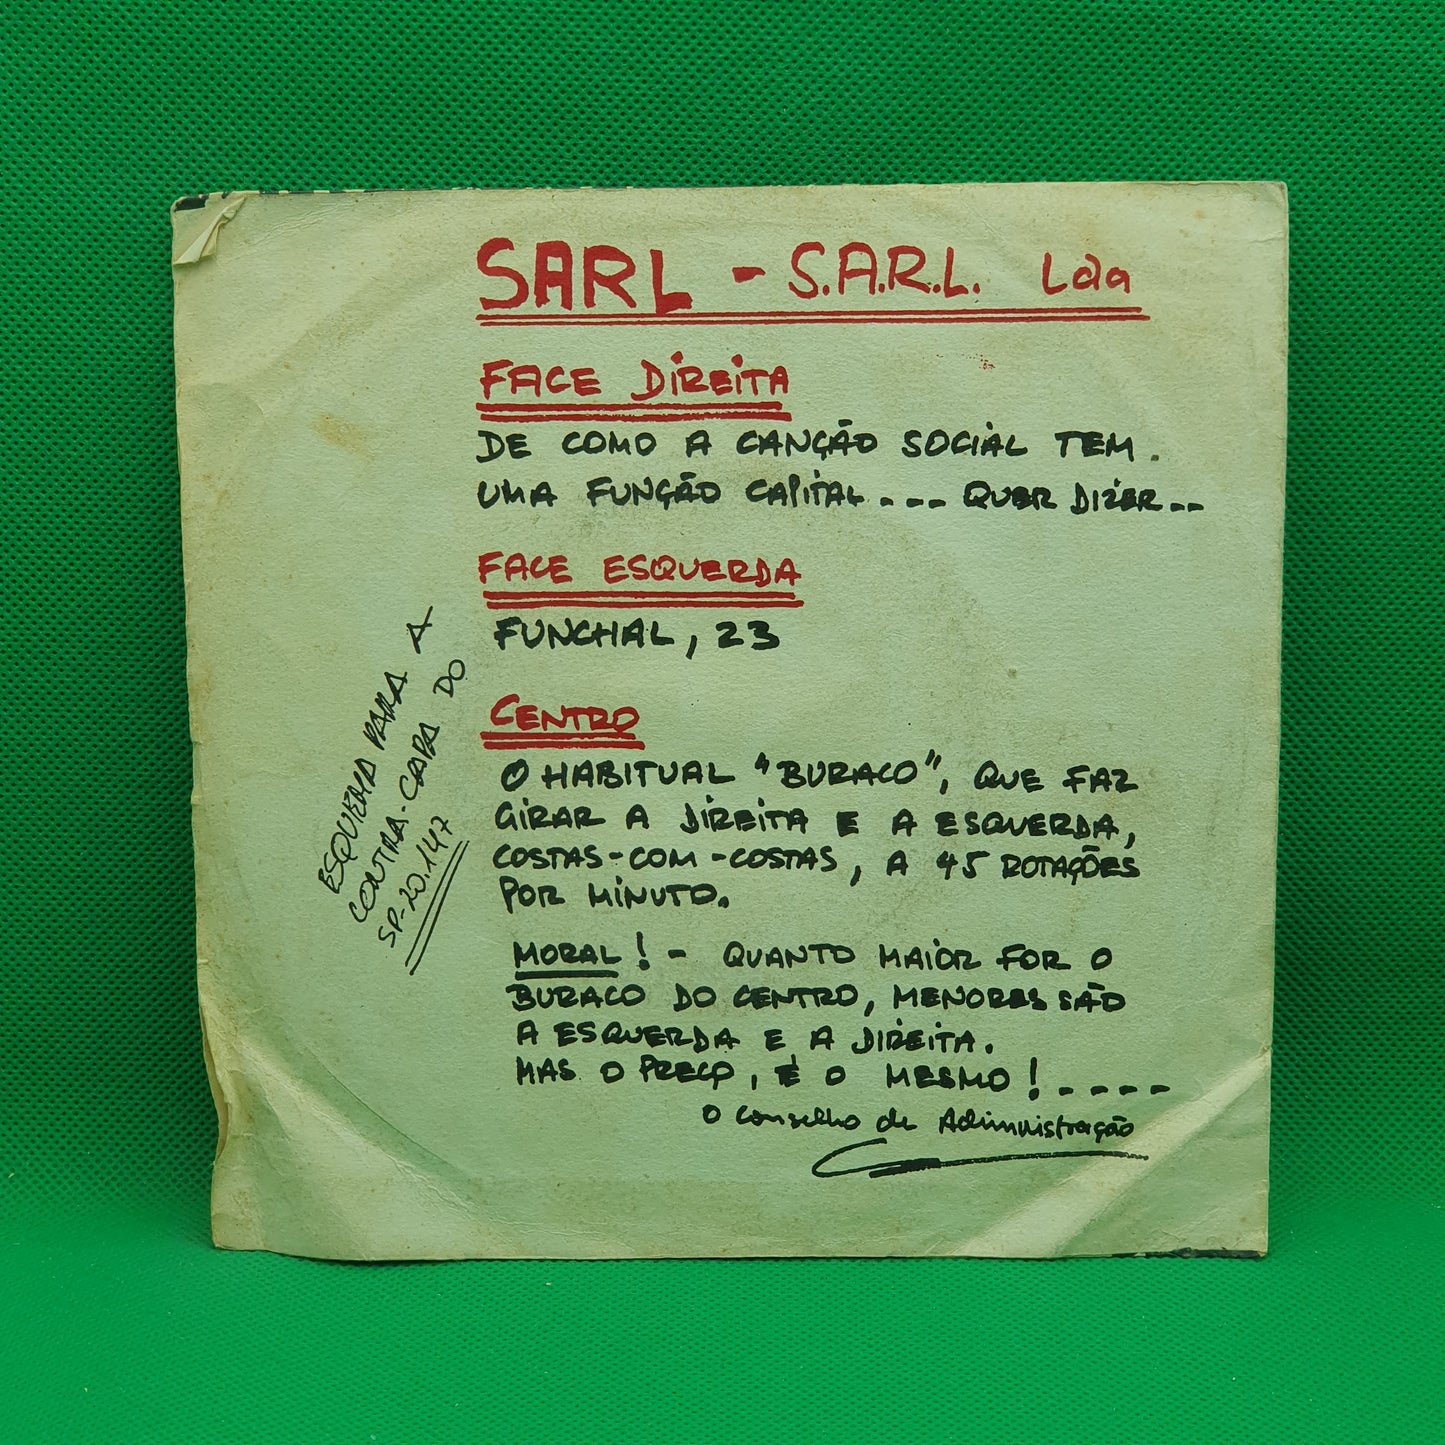 SARL - S.A.R.L. Lda
FACE DIREITA
DE COMO A CANÇÃO SOCIAL TEM.
UMA FUNÇÃO CAPITAL... QUER DIZER..
FACE ESQUERDA
FUNCHAL, 23
CENTRO
O HABITUAL "BURACO", QUE FAZ
GIRAR A DIREITA E A ESQUERDA,
COSTAS-COM-COSTAS, A 45 ROTAÇÕES
POR MINUTO.
MORAL! - QUANTO MAIOR FOR O
BURACO DO CENTRO, MENORES SÃO
A ESQUERDA E A DIREITA.
MAS O PREÇO, É O MESMO!....
O Conselho de Administração
ESQUEMA PARA A
CONTRA-CAPA DO
SP-20.147